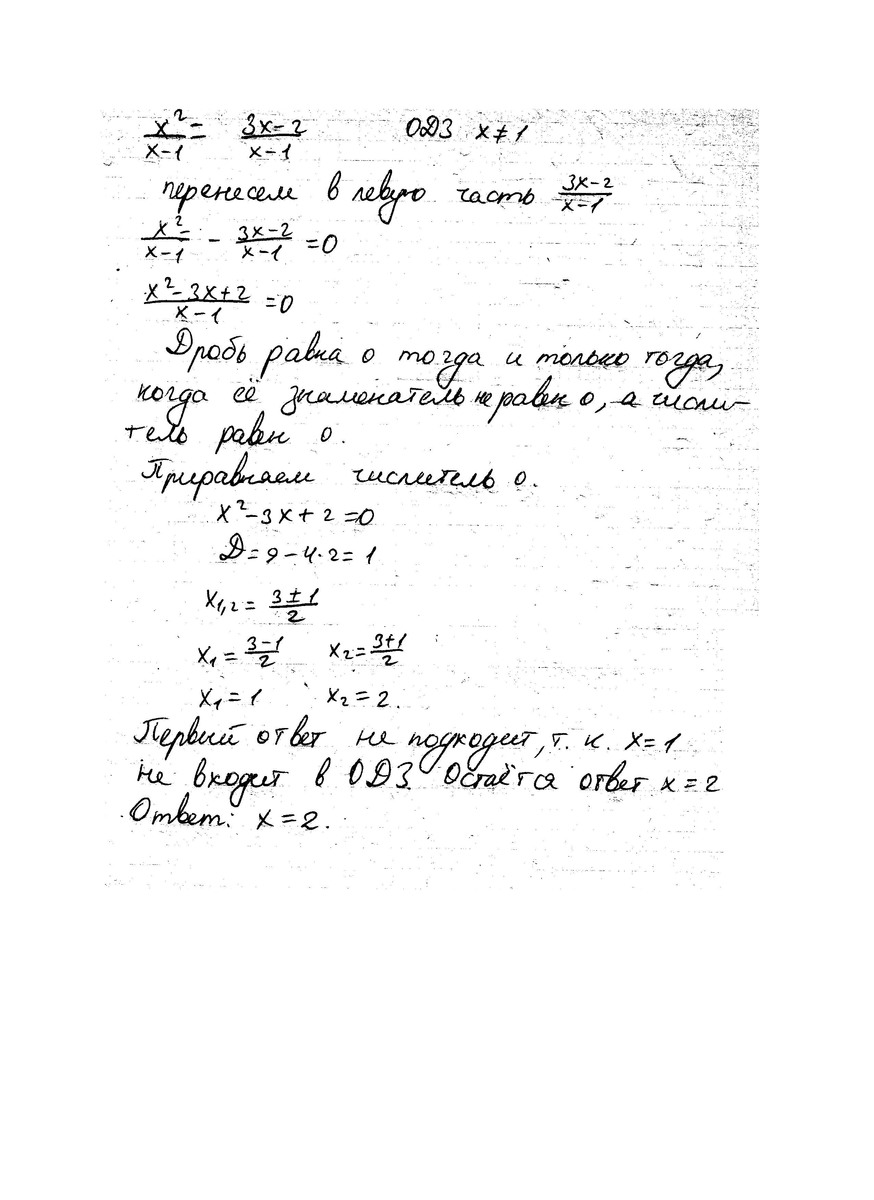 x²/(x-1) = (3x-2)/(x-1) ОДЗ x≠1
перенесем в левую часть (3x-2)/(x-1)
x²/(x-1) - (3x-2)/(x-1) = 0
(x²-3x+2)/(x-1) = 0
Дробь равна 0 тогда и только тогда,
когда её знаменатель не равен 0, а числи-
тель равен 0.
Приравняем числитель 0.
x²-3x+2=0
D=9-4·2=1
x₁,₂ = (3±1)/2
x₁ = (3-1)/2 x₂ = (3+1)/2
x₁ = 1 x₂ = 2.
Первый ответ не подходит, т. к. x=1
не входит в ОДЗ. Остаётся ответ x=2
Ответ: x=2.